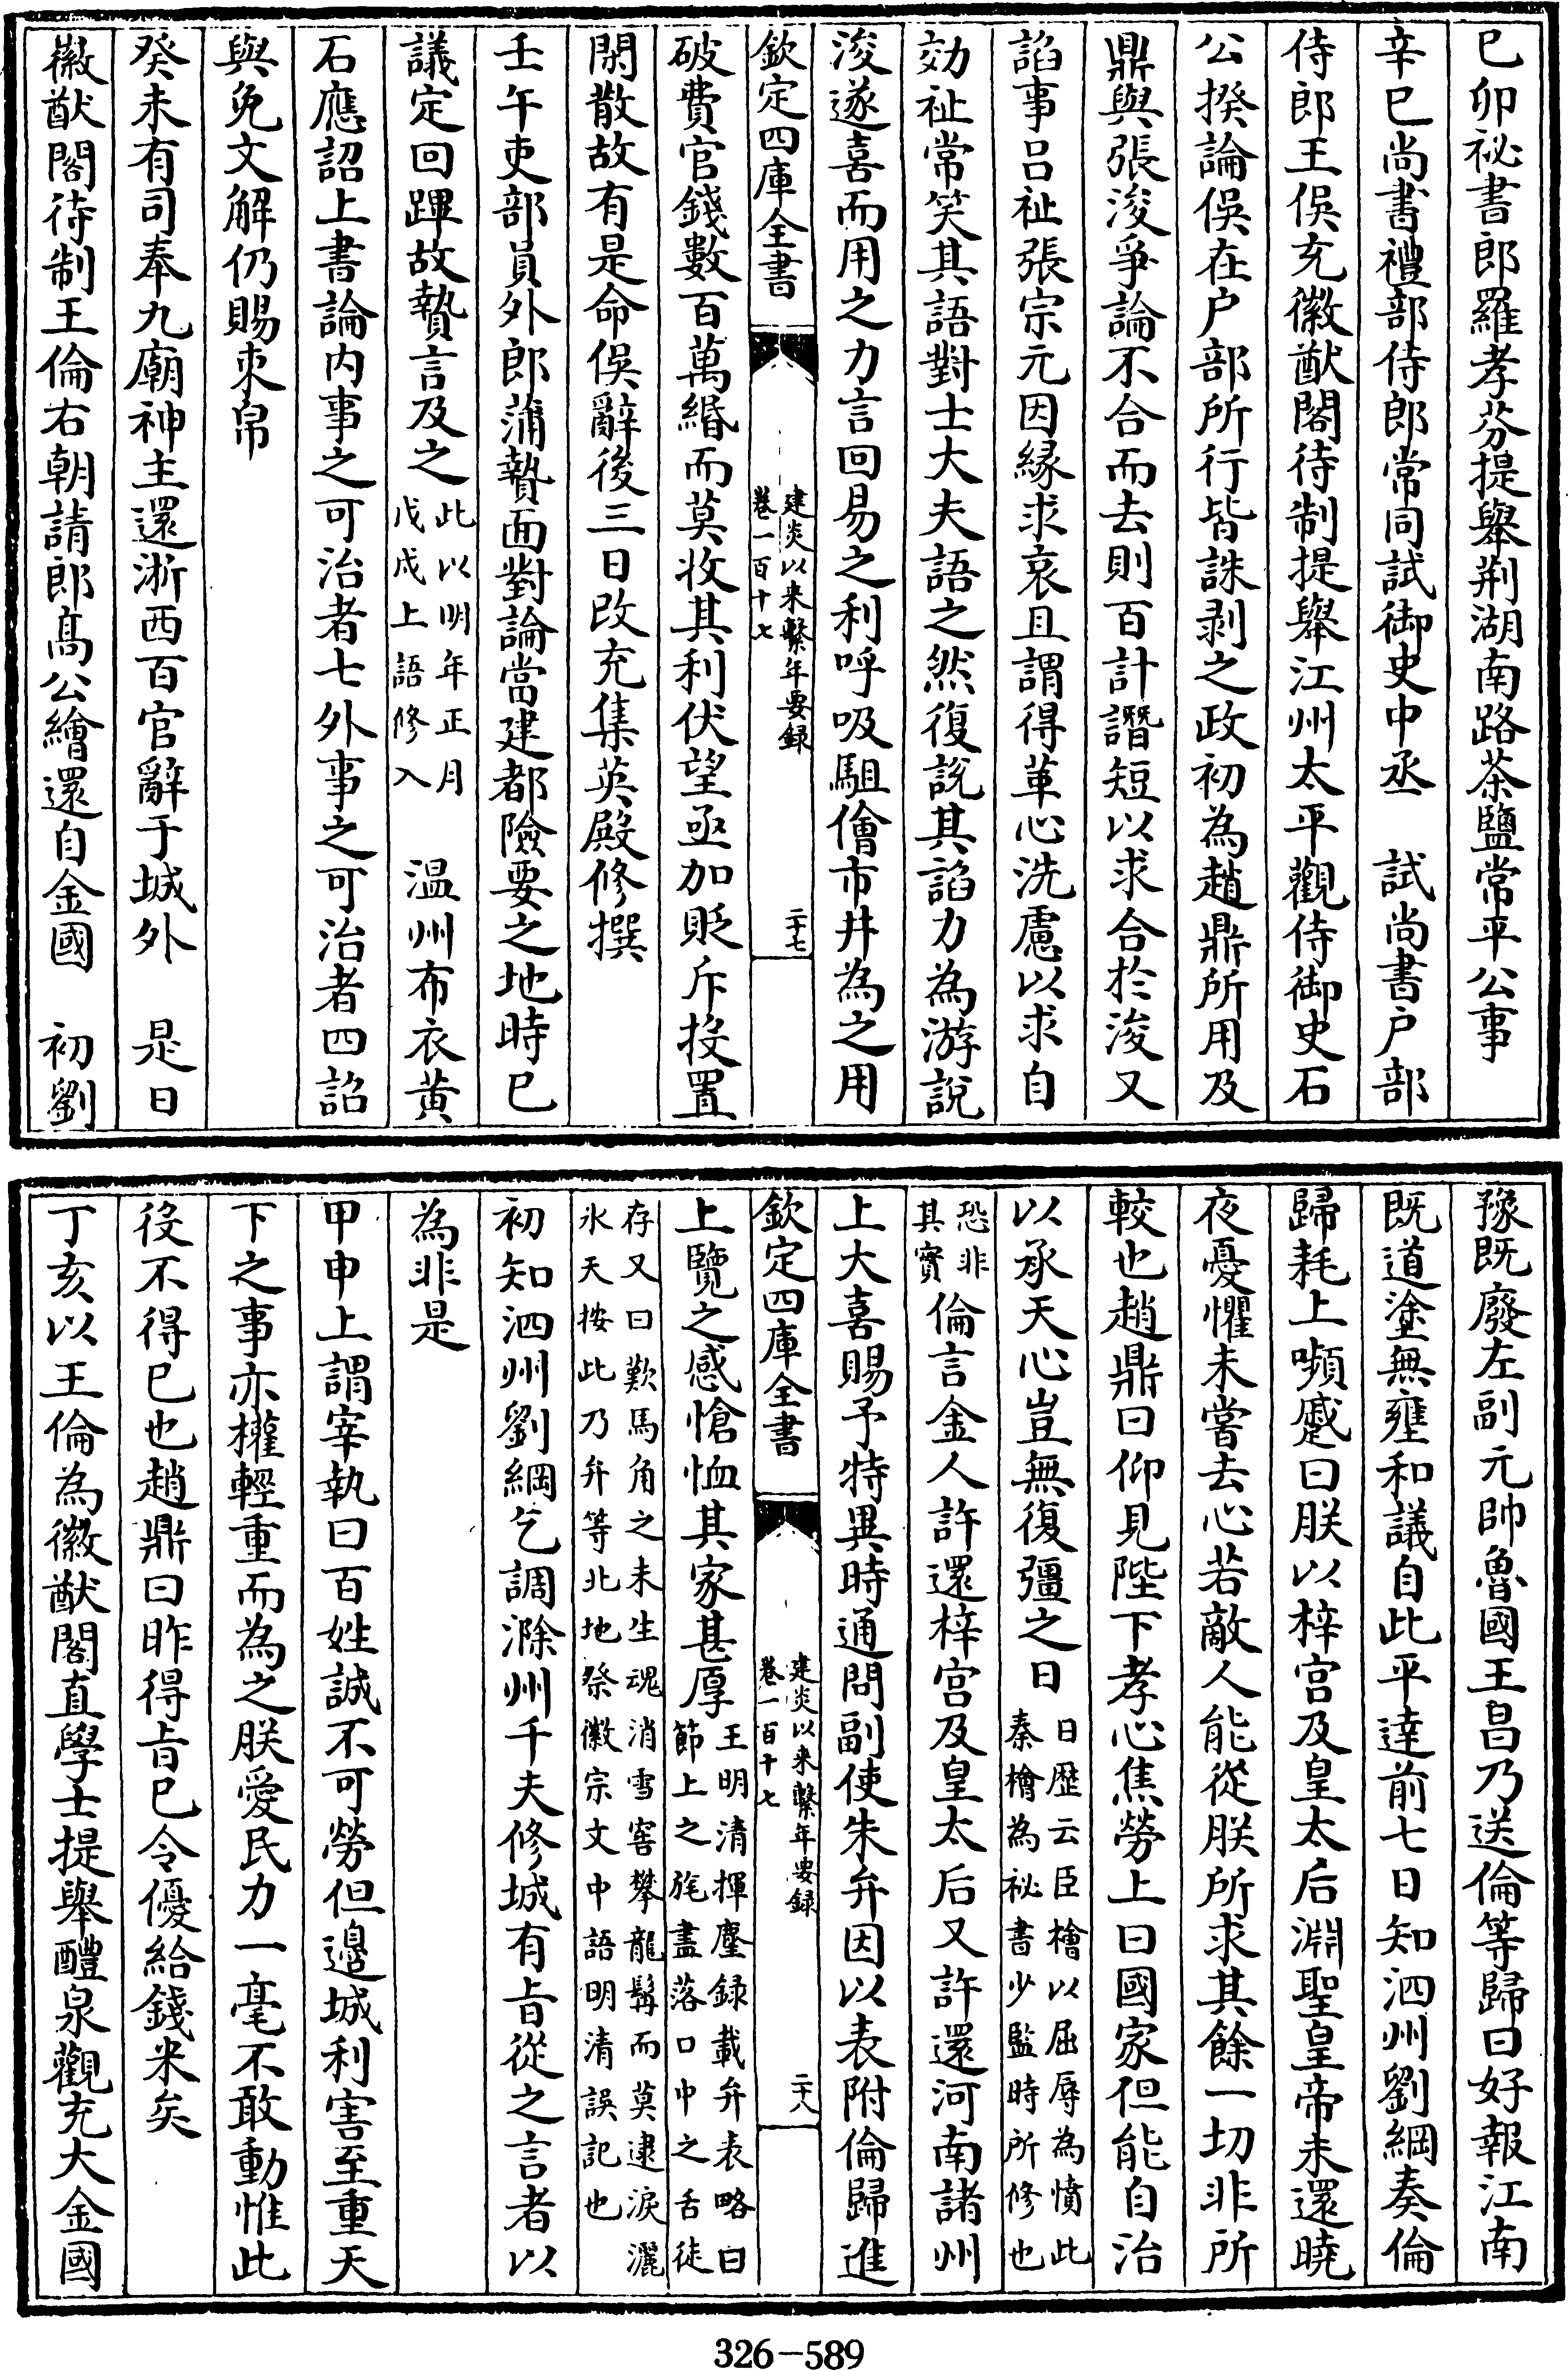 己卯祕書郎羅孝芬提舉荆湖南路茶鹽常平公事
辛巳尚書禮部侍郎常同試御史中丞　試尚書户部
侍郎王俁充徽猷閣待制提舉江州太平觀侍御史石
公揆論俁在户部所行皆誅剥之政初為趙鼎所用及
鼎與張浚爭論不合而去則百計譖短以求合於浚又
諂事吕祉張宗元因緣求哀且謂得革心洗慮以求自
効祉常笑其語對士大夫語之然復說其諂力為游說
浚遂喜而用之力言回易之利呼吸駔儈市井為之用
欽定四庫全書　建炎以来繫年要録 卷一百十七　二十七
破費官錢數百萬緡而莫收其利伏望亟加貶斥投置
閑散故有是命俁辭後三日改充集英殿修撰
壬午吏部員外郎蒲贄面對論當建都險要之地時已
議定回蹕故贄言及之此以明年正月戊戌上語修入　温州布衣黄
石應詔上書論内事之可治者七外事之可治者四詔
與免文解仍賜束帛
癸未有司奉九廟神主還浙西百官辭于城外　是日
徽猷閣待制王倫右朝請郎高公繪還自金國　初劉
豫既廢左副元帥魯國王昌乃送倫等歸曰好報江南
既道塗無壅和議自此平達前七日知泗州劉綱奏倫
歸耗上嚬蹙曰朕以梓宫及皇太后淵聖皇帝未還曉
夜憂懼未嘗去心若敵人能從朕所求其餘一切非所
較也趙鼎曰仰見陛下孝心焦勞上曰國家但能自治
以承天心豈無復彊之日日歴云臣檜以屈辱為憤此秦檜為祕書少監時所修也
恐非其實倫言金人許還梓宫及皇太后又許還河南諸州
上大喜賜予特異時通問副使朱弁因以表附倫歸進
欽定四庫全書　建炎以来繫年要録 卷一百十七　二十八
上覽之感愴恤其家甚厚王明清揮麈録載弁表略曰節上之旄盡落口中之舌徒
存又曰歎馬角之未生魂消雪窖攀龍髯而莫逮淚灑氷天按此乃弁等北地祭徽宗文中語明清誤記也
初知泗州劉綱乞調滁州千夫修城有㫖從之言者以
為非是
甲申上謂宰執曰百姓誠不可勞但邉城利害至重天
下之事亦權輕重而為之朕愛民力一毫不敢動惟此
役不得已也趙鼎曰昨得㫖已令優給錢米矣
丁亥以王倫為徽猷閣直學士提舉醴泉觀充大金國
326-589